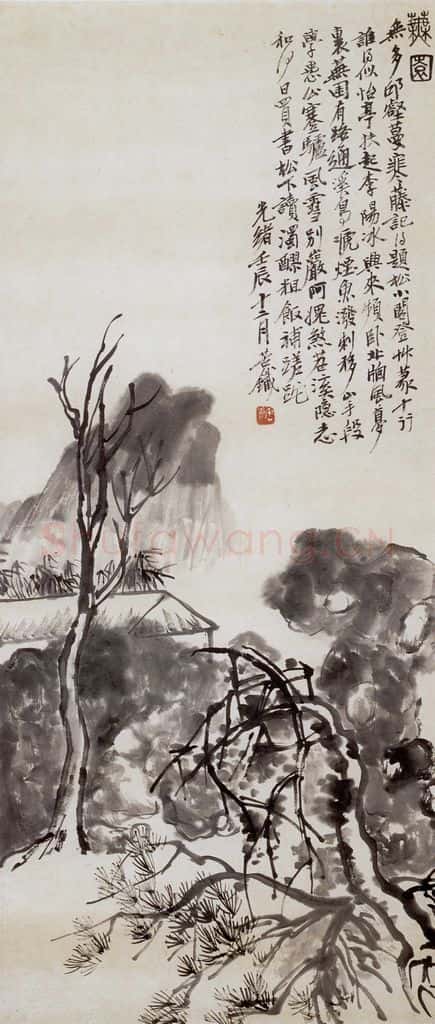 蕪園
無多邱壑蔓寒藤記得題松小閣登艸篆十行
誰得似怡亭扶起李陽冰興來傾卧北牕風夢
裏蕪園有路通溪鳥號煙魚潑剌移山手段
學愚公蹇驢風雪別巖阿媿煞苕溪隱志
和何日買書松下讀濁醪粗飯補蹉跎
光緒壬辰十二月 苦鐵
Shufawang.CN